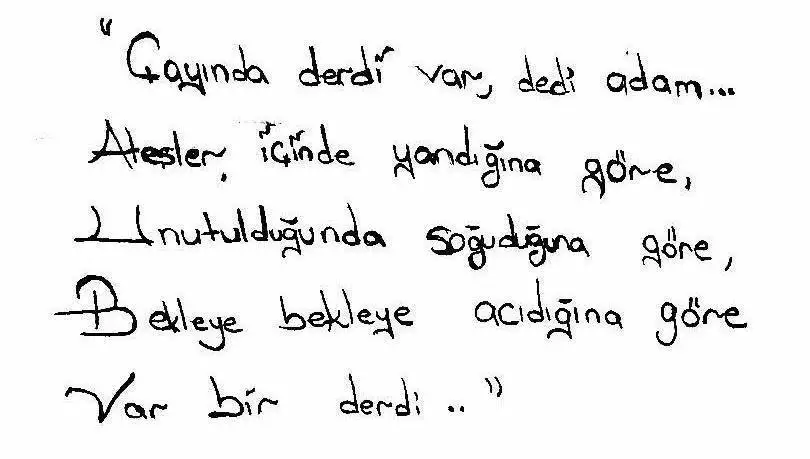 "Çayında derdi var, dedi adam...
Ateşler, içinde yandığına göre,
Unutulduğunda soğuduğuna göre,
Bekleye bekleye acıdığına göre
Var bir derdi .."